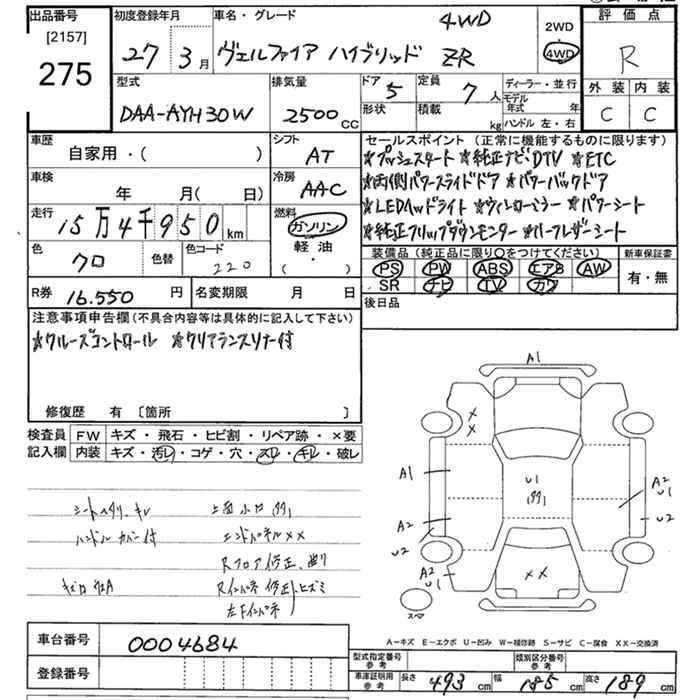 出品番号
[2157]
275
初度登録年月
27年 3月
車名・グレード
4WD
ヴェルファイア ハイブリッド ZR
2WD
4WD
評価点
R
外装 内装
C C
型式
DAA-AYH30W
排気量
2500cc
ドア 5
定員 7人
形状
積載 kg
ディーラー・並行
モデル年式 年
ハンドル 左・右
車歴
自家用・( )
シフト
AT
車検
年 月(日)
冷房
AAC
走行
15万4千950km
燃料
ガソリン
軽油
( ・ )
色
クロ
色替
色コード
220
R券 16.550円
名変期限 月 日
セールスポイント(正常に機能するものに限ります)
★プッシュスタート ★純正ナビ、DTV ★ETC
★両側パワースライドドア ★パワーバックドア
★LEDヘッドライト ★ウィンカーミラー ★パワーシート
★純正フリップダウンモニター ★ハーフレザーシート
装備品(純正品に限り○をつけてください)
新車保証書
PS PW ABS エアB AW
SR ナビ TV カワ
有・無
後日品
注意事項申告欄(不具合内容等は具体的に記入して下さい)
★クルーズコントロール ★クリアランスソナー付
修復歴 有 [箇所 ]
検査員記入欄
FW キズ・飛石・ヒビ割・リペア跡・×要
内装 キズ・汚レ・コゲ・穴・スレ・キレ・破レ
シートヘタリ、キレ
ハンドルカバー付
エンドパネルXX
Rフロア修正、曲り
Rインパネ修正、ヒズミ
左下インパネ
A1
X
X
A1
U1
A2
U1
A2
U2
U2
XX
A2
U2
スペア
A-キズ E-エクボ U-凹み W-補修跡 S-サビ C-腐食 XX-交換済
車台番号 0004684
登録番号
型式指定番号 参考
類別区分番号 参考
車庫証明用 参考 長さ 493cm 幅 185cm 高さ 189cm